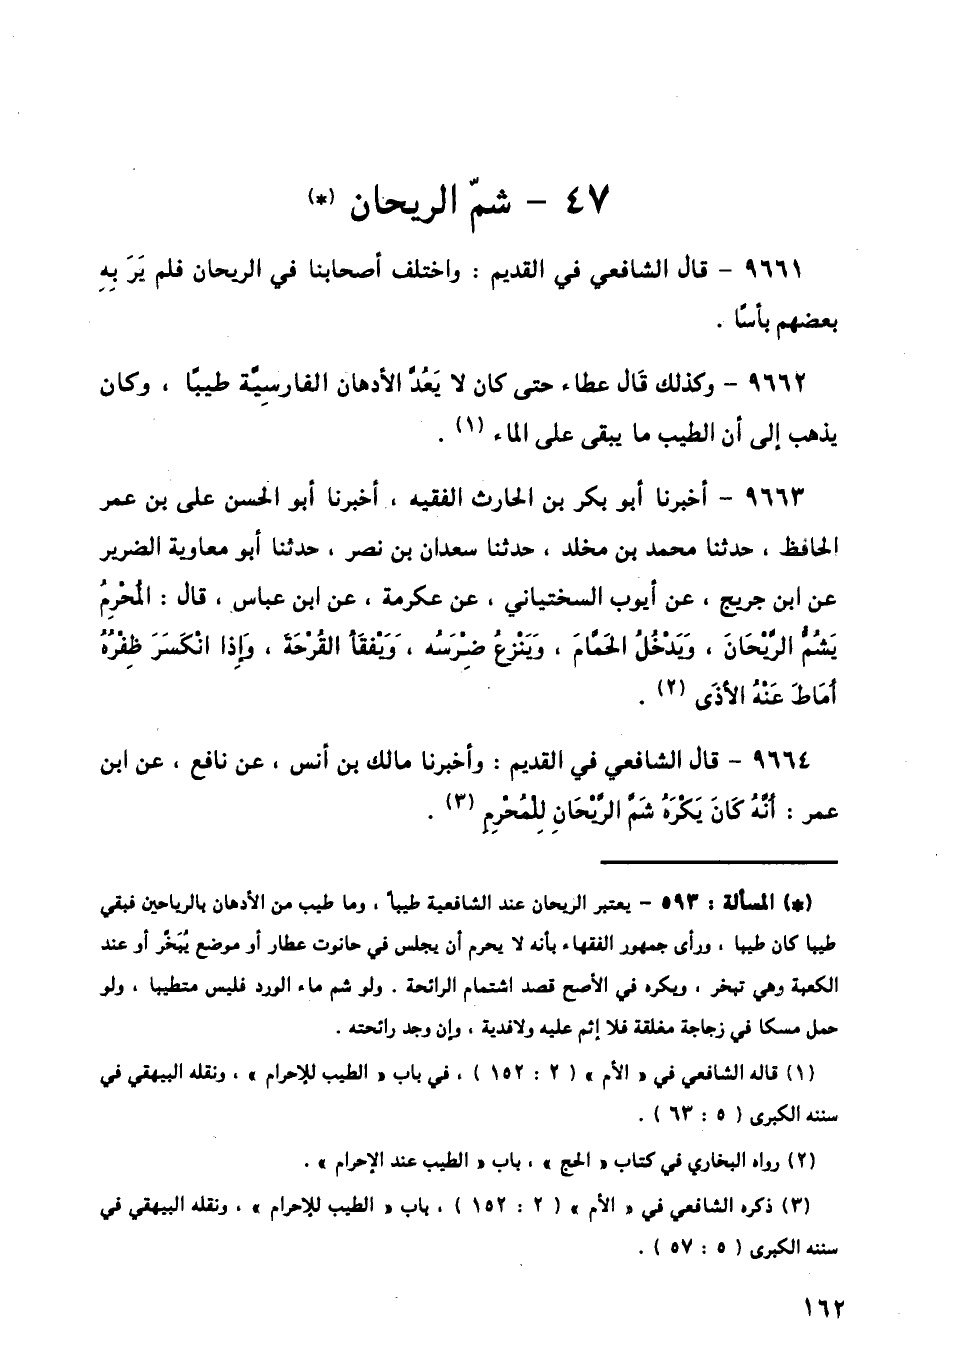 ٤٧ – شمّ الريحان (*)
٩٦٦١ – قال الشافعي في القديم : واختلف أصحابنا في الريحان فلم يَرَ بِهِ
بعضهم بأسًا .
٩٦٦٢ – وكذلك قَال عطاء حتى كان لا يَعُدُّ الأدهان الفارسِيَّة طيبًا ، وكان
يذهب إلى أن الطيب ما يبقى على الماء (١) .
٩٦٦٣ – أخبرنا أبو بكر بن الحارث الفقيه ، أخبرنا أبو الحسن على بن عمر
الحافظ ، حدثنا محمد بن مخلد ، حدثنا سعدان بن نصر ، حدثنا أبو معاوية الضرير
عن ابن جريج ، عن أيوب السختياني ، عن عكرمة ، عن ابن عباس ، قال : المُحْرِمُ
يَشُمُّ الرَّيْحَانَ ، وَيَدْخُلُ الحَمَّامَ ، وَيَنْزِعُ ضِرْسَهُ ، وَيَفْقَأُ القُرْحَةَ ، وَإِذا انْكَسَرَ ظِفْرُهُ
أمَاطَ عَنْهُ الأذَى (٢) .
٩٦٦٤ – قال الشافعي في القديم : وأخبرنا مالك بن أنس ، عن نافع ، عن ابن
عمر : أنَّهُ كَانَ يَكْرَهُ شَمَّ الرَّيْحَانِ لِلْمُحْرِمِ (٣) .
(*) المسألة : ٥٩٣ – يعتبر الريحان عند الشافعية طيباً ، وما طيب من الأدهان بالرياحين فبقي
طيبا كان طيبا ، ورأى جمهور الفقهاء بأنه لا يحرم أن يجلس في حانوت عطار أو موضع يُبَخَّر أو عند
الكعبة وهي تبخر ، ويكره في الأصح قصد اشتمام الرائحة . ولو شم ماء الورد فليس متطيبا ، ولو
حمل مسكا في زجاجة مغلقة فلا إثم عليه ولافدية ، وإن وجد رائحته .
(١) قاله الشافعي في « الأم » ( ٢ : ١٥٢ ) ، في باب « الطيب للإحرام » ، ونقله البيهقي في
سننه الكبرى ( ٥ : ٦٣ ) .
(٢) رواه البخاري في كتاب « الحج » ، باب « الطيب عند الإحرام » .
(٣) ذكره الشافعي في « الأم » ( ٢ : ١٥٢ ) ، باب « الطيب للإحرام » ، ونقله البيهقي في
سننه الكبرى ( ٥ : ٥٧ ) .
١٦٢